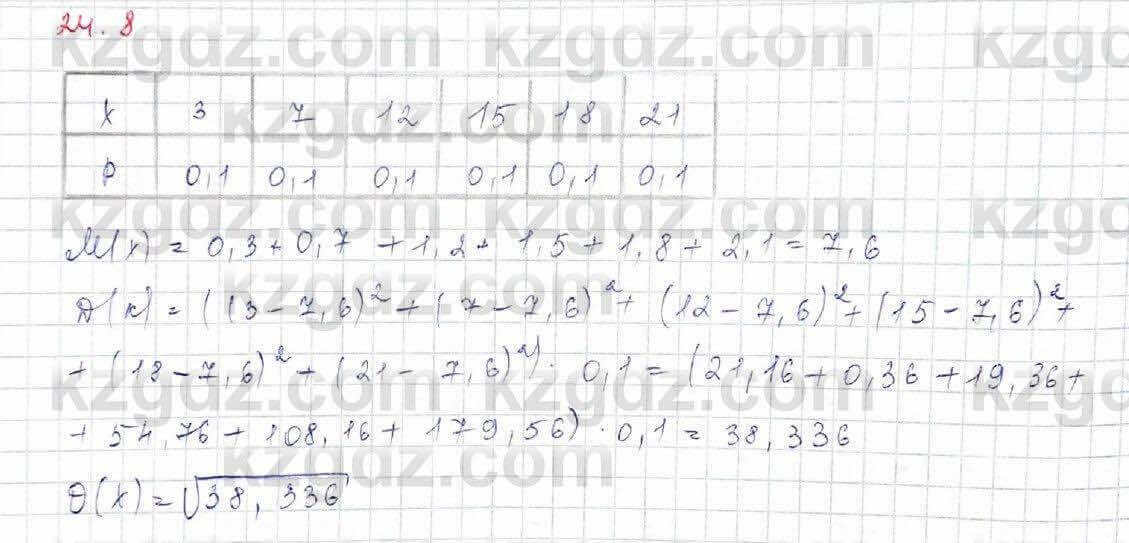 24.8
X 3 7 12 15 18 21
P 0,1 0,1 0,1 0,1 0,1 0,1
M(x) = 0,3 + 0,7 + 1,2 + 1,5 + 1,8 + 2,1 = 7,6
D(x) = ((3 - 7,6)² + (7 - 7,6)² + (12 - 7,6)² + (15 - 7,6)² +
+ (18 - 7,6)² + (21 - 7,6)²) · 0,1 = (21,16 + 0,36 + 19,36 +
+ 54,76 + 108,16 + 179,56) · 0,1 = 38,336
θ(X) = √38,336
kzgdz.com